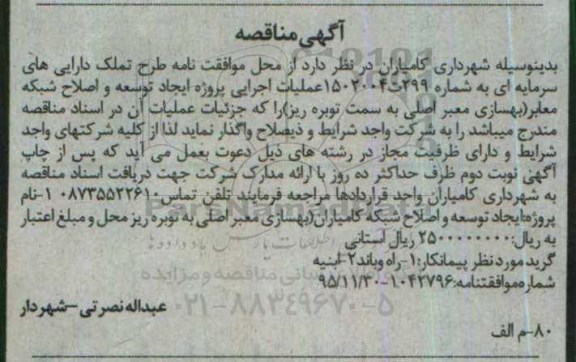 آگهی مناقصه
بدینوسیله شهرداری کامیاران در نظر دارد از محل موافقت نامه طرح تملک دارایی های
سرمایه ای به شماره ۲۹۹ت۱۵۰۲۰۰۴عملیات اجرایی پروژه ایجاد توسعه و اصلاح شبکه
معابر(بهسازی معبر اصلی به سمت توبره ریز)را که جزئیات عملیات آن در اسناد مناقصه
مندرج میباشد را به شرکت واجد شرایط و ذیصلاح واگذار نماید لذا از کلیه شرکتهای واجد
شرایط و دارای ظرفیت مجاز در رشته های ذیل دعوت بعمل می آید که پس از چاپ
آگهی نوبت دوم ظرف حداکثر ده روز با ارائه مدارک شرکت جهت دریافت اسناد مناقصه
به شهرداری کامیاران واحد قراردادها مراجعه فرمایند تلفن تماس۰۸۷۳۵۵۲۲۶۱۰ ۱-نام
پروژه:ایجاد توسعه و اصلاح شبکه کامیاران(بهسازی معبر اصلی به توبره ریز محل و مبلغ اعتبار
به ریال:۲۵۰۰۰۰۰۰۰۰ ریال استانی
گرید مورد نظر پیمانکار:۱-راه وباند۲-ابنیه
شماره موافقتنامه:۱۰۴۲۷۹۶-۹۵/۱۱/۳۰
عبداله نصرتی-شهردار
۰۲۱-۸۸۳۴۹۶۷۰-۵
۸۰-م الف